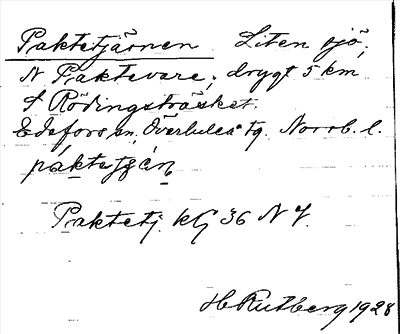 Paktetjärnen Liten sjö,
N Paktevare, drygt 5 km
S Rödingsträsket.
Edefors sn, Överluleå tg. Norrb. l.
Paktetj. kG 36 N 7.
H Rutberg 1928